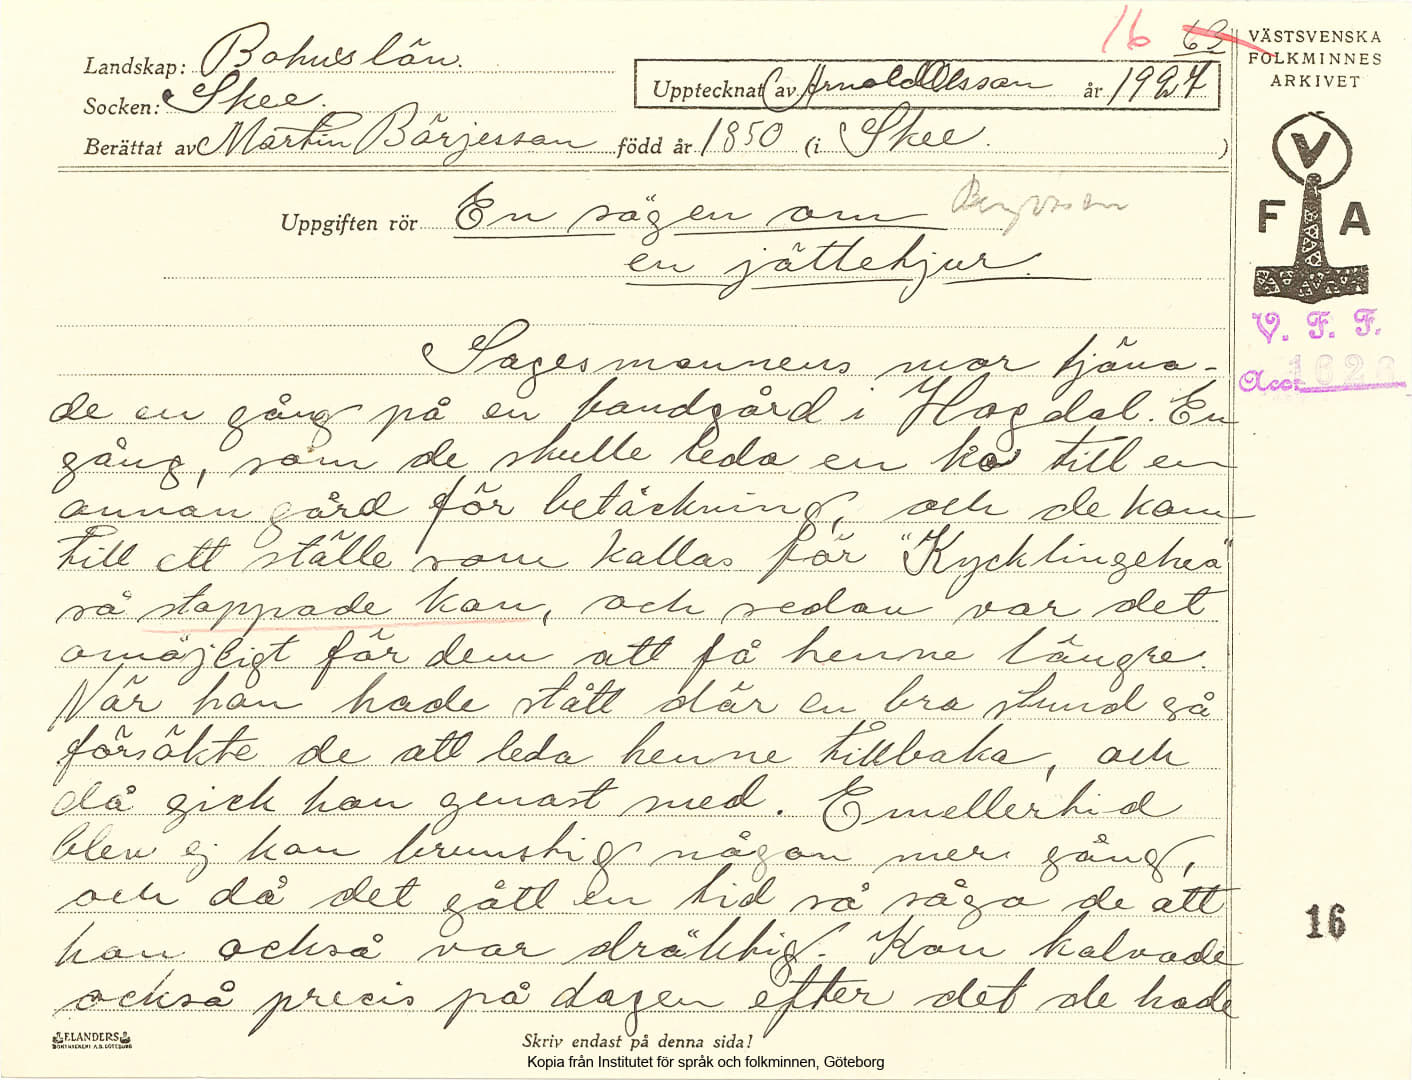 16 63
VÄSTSVENSKA
FOLKMINNES
ARKIVET
Landskap: Bohuslän.
Socken: Skee.
Upptecknat av Arnold Olsson år 1927
Berättat av Martin Börjesson född år 1850 (i Skee. )
V
F A
Uppgiften rör En sägen om
en jättetjur.
V. F. F.
Acc. 1626
Sagesmannens mor tjäna-
de en gång på en bondgård i Hogdal. En
gång, som de skulle leda en ko till en
annan gård för betäckning, och de kom
till ett ställe som kallas för "Kycklingehea"
så stoppade kon, och sedan var det
omöjligt för dem att få henne längre.
När hon hade stått där en bra stund så
försökte de att leda henne tillbaka, och
då gick hon genast med. Emellertid
blev ej kon brunstig någon mer gång,
och då det gått en tid så sågo de att
hon också var dräktig. Kon kalvade
också precis på dagen efter det de hade
16
ELANDERS
BOKTRYCKERI A.B. GÖTEBORG
Skriv endast på denna sida!
Kopia från Institutet för språk och folkminnen, Göteborg